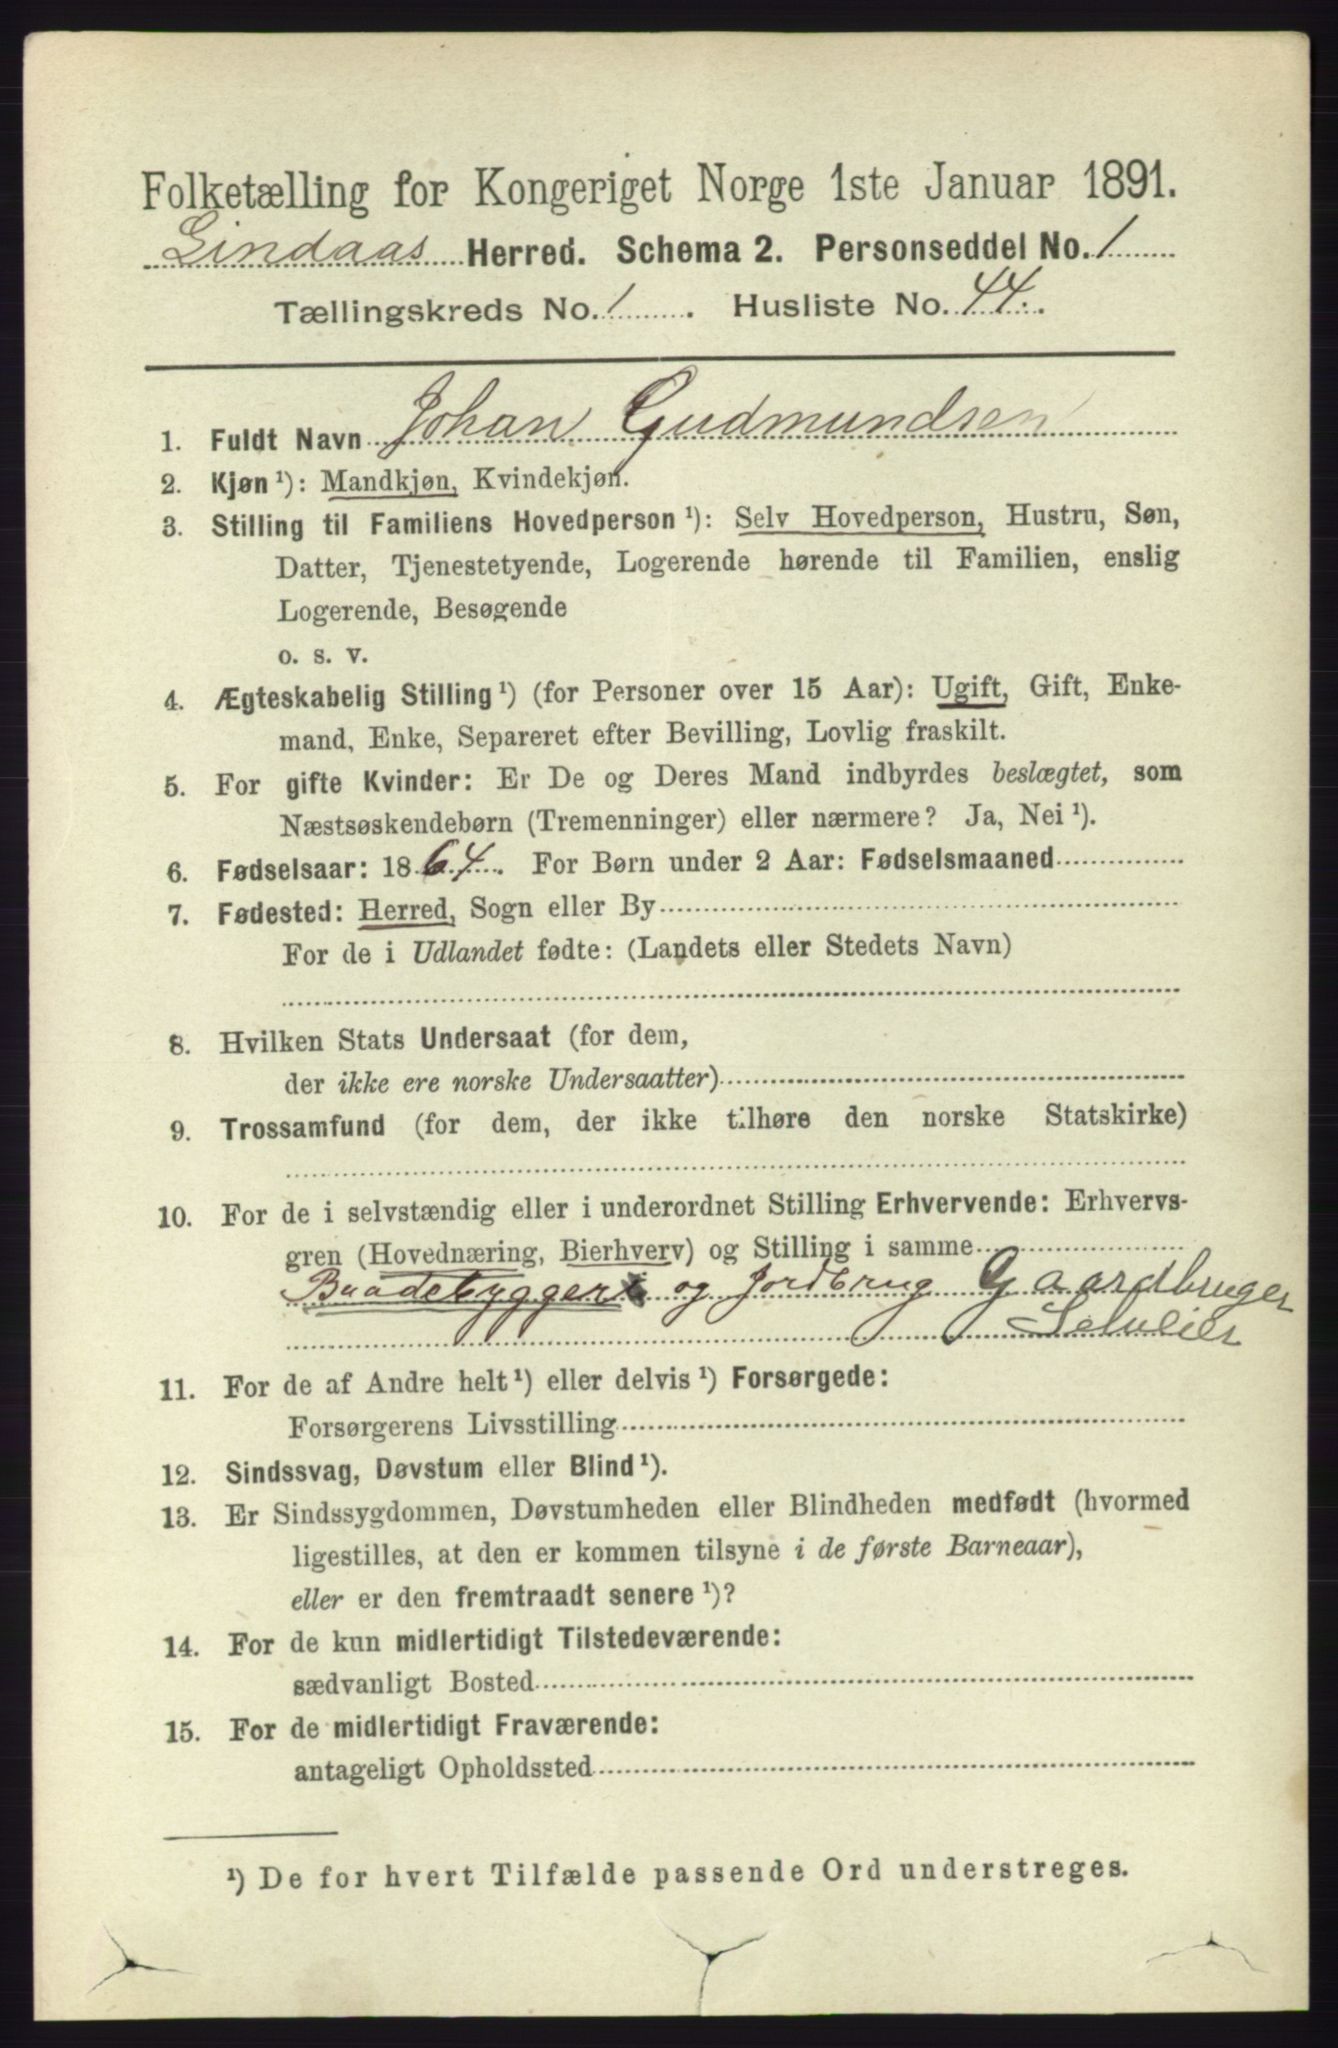 Folketælling for Kongeriget Norge 1ste Januar 1891.
Lindaas Herred. Schema 2. Personseddel No. 1
Tællingskreds No. 1. Husliste No. 44.
1. Fuldt Navn Johan Gudmundsen
2. Kjøn ¹): Mandkjøn, Kvindekjøn.
3. Stilling til Familiens Hovedperson ¹): Selv Hovedperson, Hustru, Søn,
Datter, Tjenestetyende, Logerende hørende til Familien, enslig
Logerende, Besøgende
o. s. v.
4. Ægteskabelig Stilling ¹) (for Personer over 15 Aar): Ugift, Gift, Enke-
mand, Enke, Separeret efter Bevilling, Lovlig fraskilt.
5. For gifte Kvinder: Er De og Deres Mand indbyrdes beslægtet, som
Næstsøskendebørn (Tremenninger) eller nærmere? Ja, Nei ¹).
6. Fødselsaar: 1864. For Børn under 2 Aar: Fødselsmaaned
7. Fødested: Herred, Sogn eller By
For de i Udlandet fødte: (Landets eller Stedets Navn)
8. Hvilken Stats Undersaat (for dem,
der ikke ere norske Undersaatter)
9. Trossamfund (for dem, der ikke tilhøre den norske Statskirke)
10. For de i selvstændig eller i underordnet Stilling Erhvervende: Erhvervs-
gren (Hovednæring, Bierhverv) og Stilling i samme
Baadebygger og Jordbrug Gaardbruger
Selveier
11. For de af Andre helt ¹) eller delvis ¹) Forsørgede:
Forsørgerens Livsstilling
12. Sindssvag, Døvstum eller Blind ¹).
13. Er Sindssygdommen, Døvstumheden eller Blindheden medfødt (hvormed
ligestilles, at den er kommen tilsyne i de første Barneaar),
eller er den fremtraadt senere ¹)?
14. For de kun midlertidigt Tilstedeværende:
sædvanligt Bosted
15. For de midlertidigt Fraværende:
antageligt Opholdssted
¹) De for hvert Tilfælde passende Ord understreges.